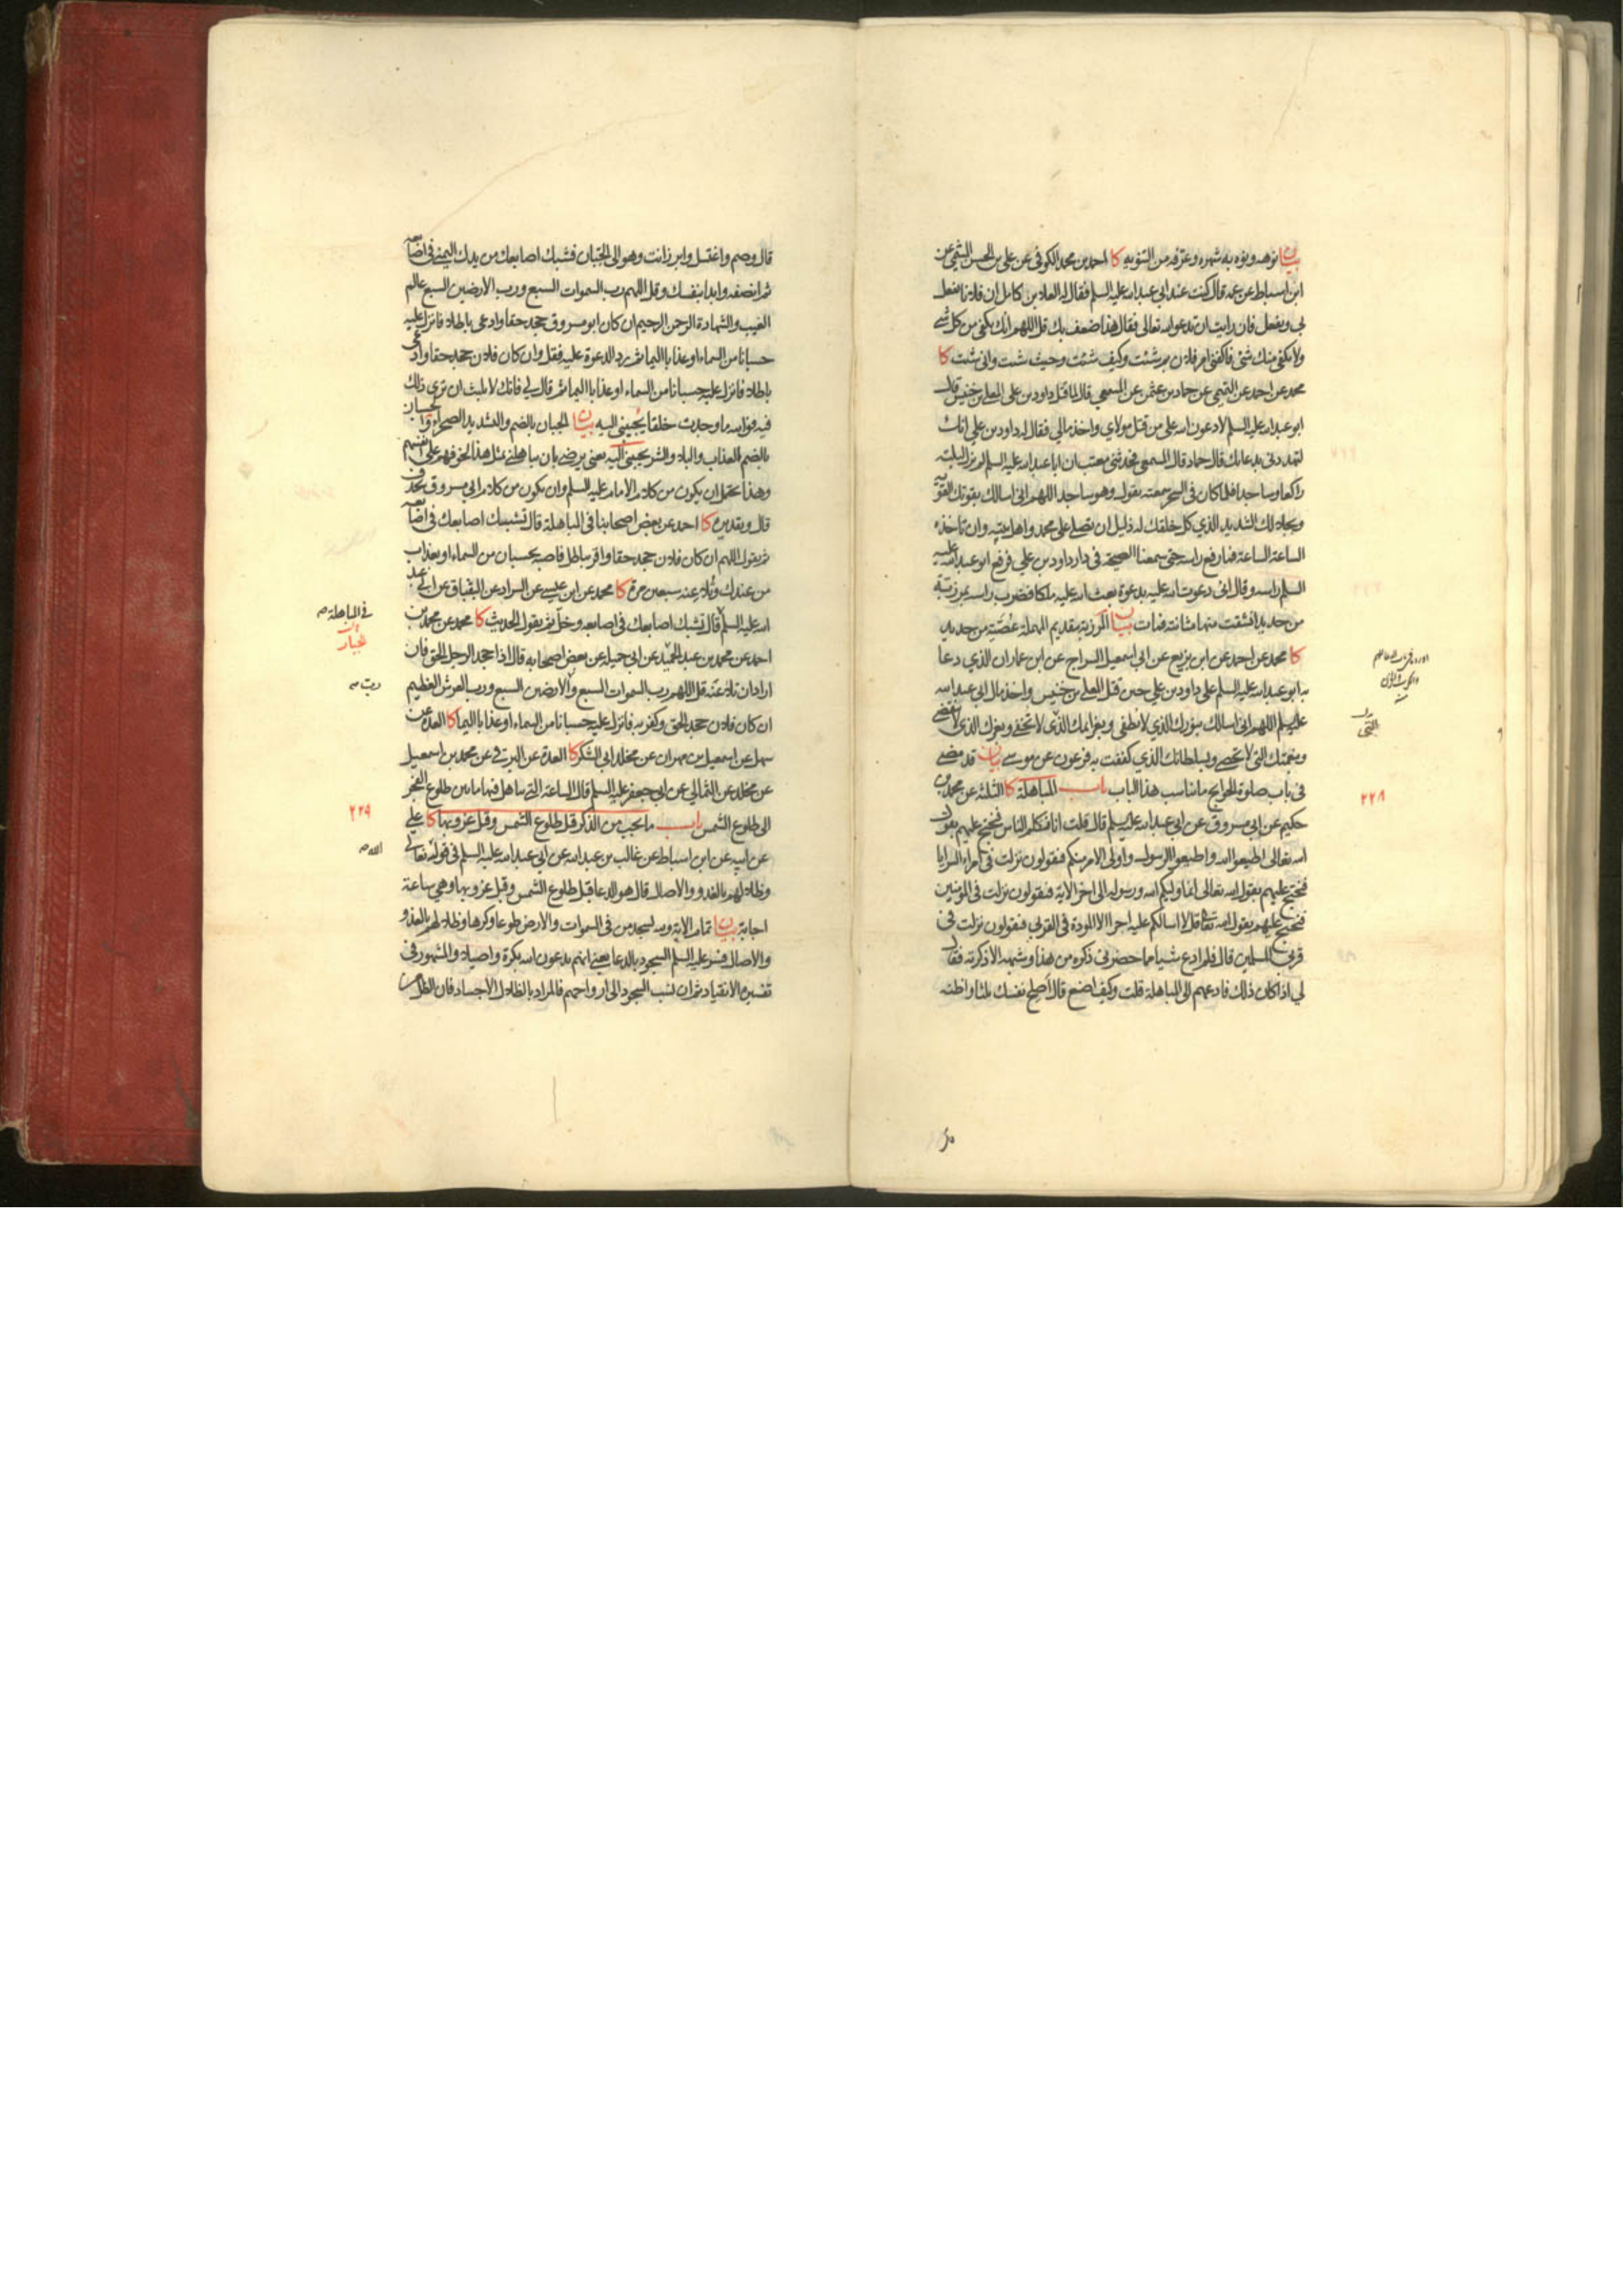 بيان نوهه ونوه به شهره وعرفه من التنويه كا احمد بن محمد الكوفي عن علي بن الحسن التيمي عن
ابن اسباط عن عمه قال كنت عند ابي عبد الله عليه السلم فقال له العلاء بن كامل ان فلانا يفعل
بي ويفعل فان رايت ان تدعو الله تعالى فقال هذا ضعف بك قل اللهم انك تكفي من كل شئ
ولا يكفي منك شئ فاكفني امر فلان بم شئت وكيف شئت وحيث شئت واني شئت كا
محمد عن احمد عن التميمي عن حماد بن عثمن عن المسمعي قال لما قتل داود بن علي المعلي بن خنيس قال
ابو عبد الله عليه السلم لادعون الله على من قتل مولاي واخذ مالي فقال له داود بن علي انك
لتهددني بدعائك قال حماد قال المسمعي فحدثني معتب ان ابا عبد الله عليه السلم لم يزل ليلته
راكعا وساجدا فلما كان في السحر سمعته يقول وهو ساجد اللهم اني اسالك بقوتك القوية
وبجلالك الشديد الذي كل خلقك له ذليل ان تصلي على محمد واهل بيته وان تاخذه
الساعة الساعة فما رفع راسه حتى سمعنا الصيحة في دار داود بن علي فرفع ابو عبد الله عليه
السلم راسه وقال اني دعوت الله عليه بدعوة بعث الله عليه ملكا فضرب راسه بمرزبة
من حديد انشقت منها مثانته فمات بيان المرزبة بتقديم المهملة عصية من حديد
كا محمد عن احمد عن ابن بزيع عن ابي اسمعيل السراج عن ابن عمار ان الذي دعا
به ابو عبد الله عليه السلم على داود بن علي حين قتل المعلي بن خنيس واخذ مال ابي عبد الله
عليه السلم اللهم اني اسالك بنورك الذي لا يطفى وبعزائمك الذي لا تخفى وبعزك الذي لا ينقضي
وبنعمتك التي لا تحصى وبسلطانك الذي كففت به فرعون عن موسى بيان قد مضى
في باب صلوة الحوايج ما يناسب هذا الباب باب المباهلة كا الثلثة عن محمد بن
حكيم عن ابي مسروق عن ابي عبد الله عليه السلم قال قلت انا نكلم الناس فنحتج عليهم بقول
الله تعالى اطيعوا الله واطيعوا الرسول واولي الامر منكم فيقولون نزلت في امراء السرايا
فنحتج عليهم بقول الله تعالى انما وليكم الله ورسوله الى اخر الاية فيقولون نزلت في المؤمنين
فنحتج عليهم بقول الله تعالى قل لا اسالكم عليه اجرا الا المودة في القربى فيقولون نزلت في
قربى المسلمين قال فلم ادع شيئا مما حضرني ذكره من هذا وشبهه الا ذكرته فقال
لي اذا كان ذلك فادعهم الى المباهلة قلت وكيف اصنع قال اصلح نفسك ثلثا واظنه
٢٢٨
قال وصم واغتسل وابرز انت وهو الى الجبان فشبك اصابعك من يدك اليمنى في اصابعه
ثم انصفه وابدا بنفسك وقل اللهم رب السموات السبع ورب الارضين السبع عالم
الغيب والشهادة الرحمن الرحيم ان كان ابو مسروق جحد حقا وادعى باطلا فانزل عليه
حسبانا من السماء او عذابا اليما ثم رد الدعوة عليه فقل وان كان فلان جحد حقا وادعى
باطلا فانزل عليه حسبانا من السماء او عذابا اليما ثم قال لي فانك لا تلبث ان ترى ذلك
فيه فوالله ما وجدت خلقا يجيبني اليه بيان الجبان بالضم والتشديد الصحراء والحسبان
بالضم العذاب والبلاء والشر يجيبني اليه يعني يرضى بان يباهلني بمثل هذا لخوفهم على انفسهم
وهذا يحتمل ان يكون من كلام الامام عليه السلم وان يكون من كلام ابي مسروق بحذف
قال وبتقديره كا احمد عن بعض اصحابنا في المباهلة قال تشبك اصابعك في اصابعه
ثم تقول اللهم ان كان فلان جحد حقا واقر بباطل فاصبه بحسبان من السماء او بعذاب
من عندك وتلاعنه سبعين مرة كا محمد عن ابن عيسى عن السراد عن البقباق عن ابي عبد
الله عليه السلم قال تشبك اصابعك في اصابعه وخل ثم تقول الحديث كا محمد عن محمد بن
احمد عن محمد بن عبد الحميد عن ابي جميلة عن بعض اصحابه قال اذا جحد الرجل الحق فان
اراد ان تلاعنه قل اللهم رب السموات السبع والارضين السبع ورب العرش العظيم
ان كان فلان جحد الحق وكفر به فانزل عليه حسبانا من السماء او عذابا اليما كا العدة عن
سهل عن اسمعيل بن مهران عن مخلد ابي الشكر كا العدة عن البرقي عن محمد بن اسمعيل
عن مخلد عن الثمالي عن ابي جعفر عليه السلم قال الساعة التي تباهل فيها ما بين طلوع الفجر
الى طلوع الشمس باب ما يجب من الذكر قبل طلوع الشمس وقبل غروبها كا علي
عن ابيه عن ابن اسباط عن غالب بن عبد الله عن ابي عبد الله عليه السلم في قوله تعالى
وظلالهم بالغدو والاصال قال هو الدعا قبل طلوع الشمس وقبل غروبها وهي ساعة
اجابة بيان تمام الاية ولله يسجد من في السموات والارض طوعا وكرها وظلالهم بالغدو
والاصال فسر عليه السلم السجود بالدعا يعني انهم يدعون الله بكرة واصيلا والمشهور في
تفسيره الانقياد ثم ان نسب السجود الى ارواحهم فالمراد بالظلال الاجساد فان الظل
في المباهلة
٢٢٩